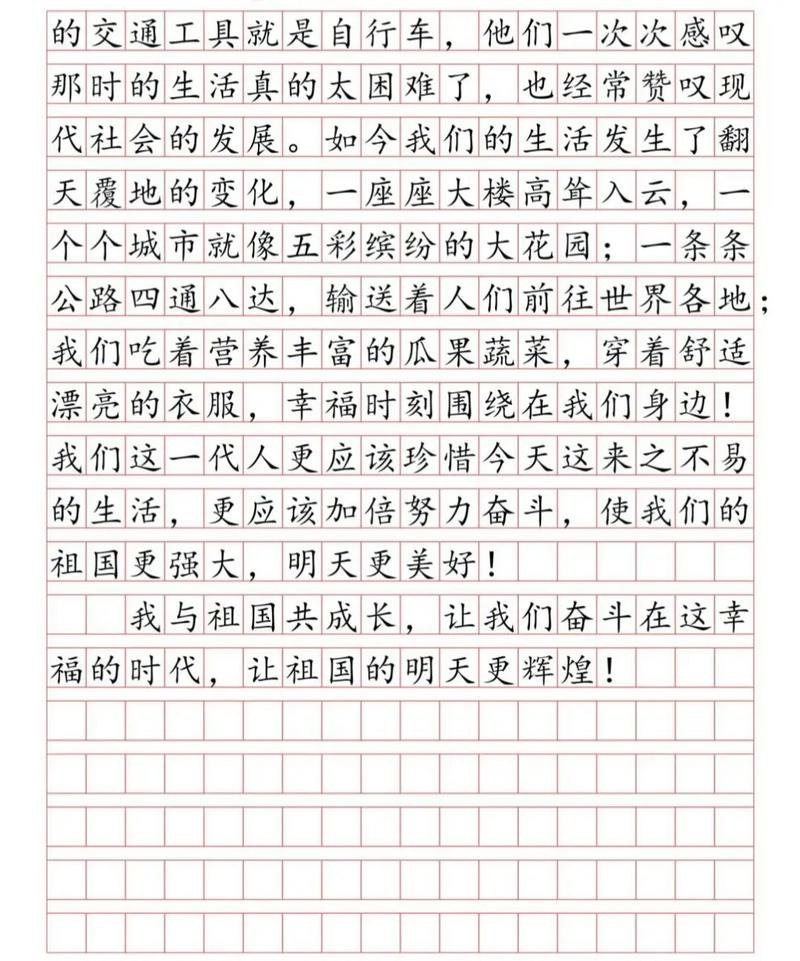 的交通工具就是自行车，他们一次次感叹
那时的生活真的太困难了，也经常赞叹现
代社会的发展。如今我们的生活发生了翻
天覆地的变化，一座座大楼高耸入云，一
个个城市就像五彩缤纷的大花园；一条条
公路四通八达，输送着人们前往世界各地；
我们吃着营养丰富的瓜果蔬菜，穿着舒适
漂亮的衣服，幸福时刻围绕在我们身边！
我们这一代人更应该珍惜今天这来之不易
的生活，更应该加倍努力奋斗，使我们的
祖国更强大，明天更美好！
我与祖国共成长，让我们奋斗在这幸
福的时代，让祖国的明天更辉煌！